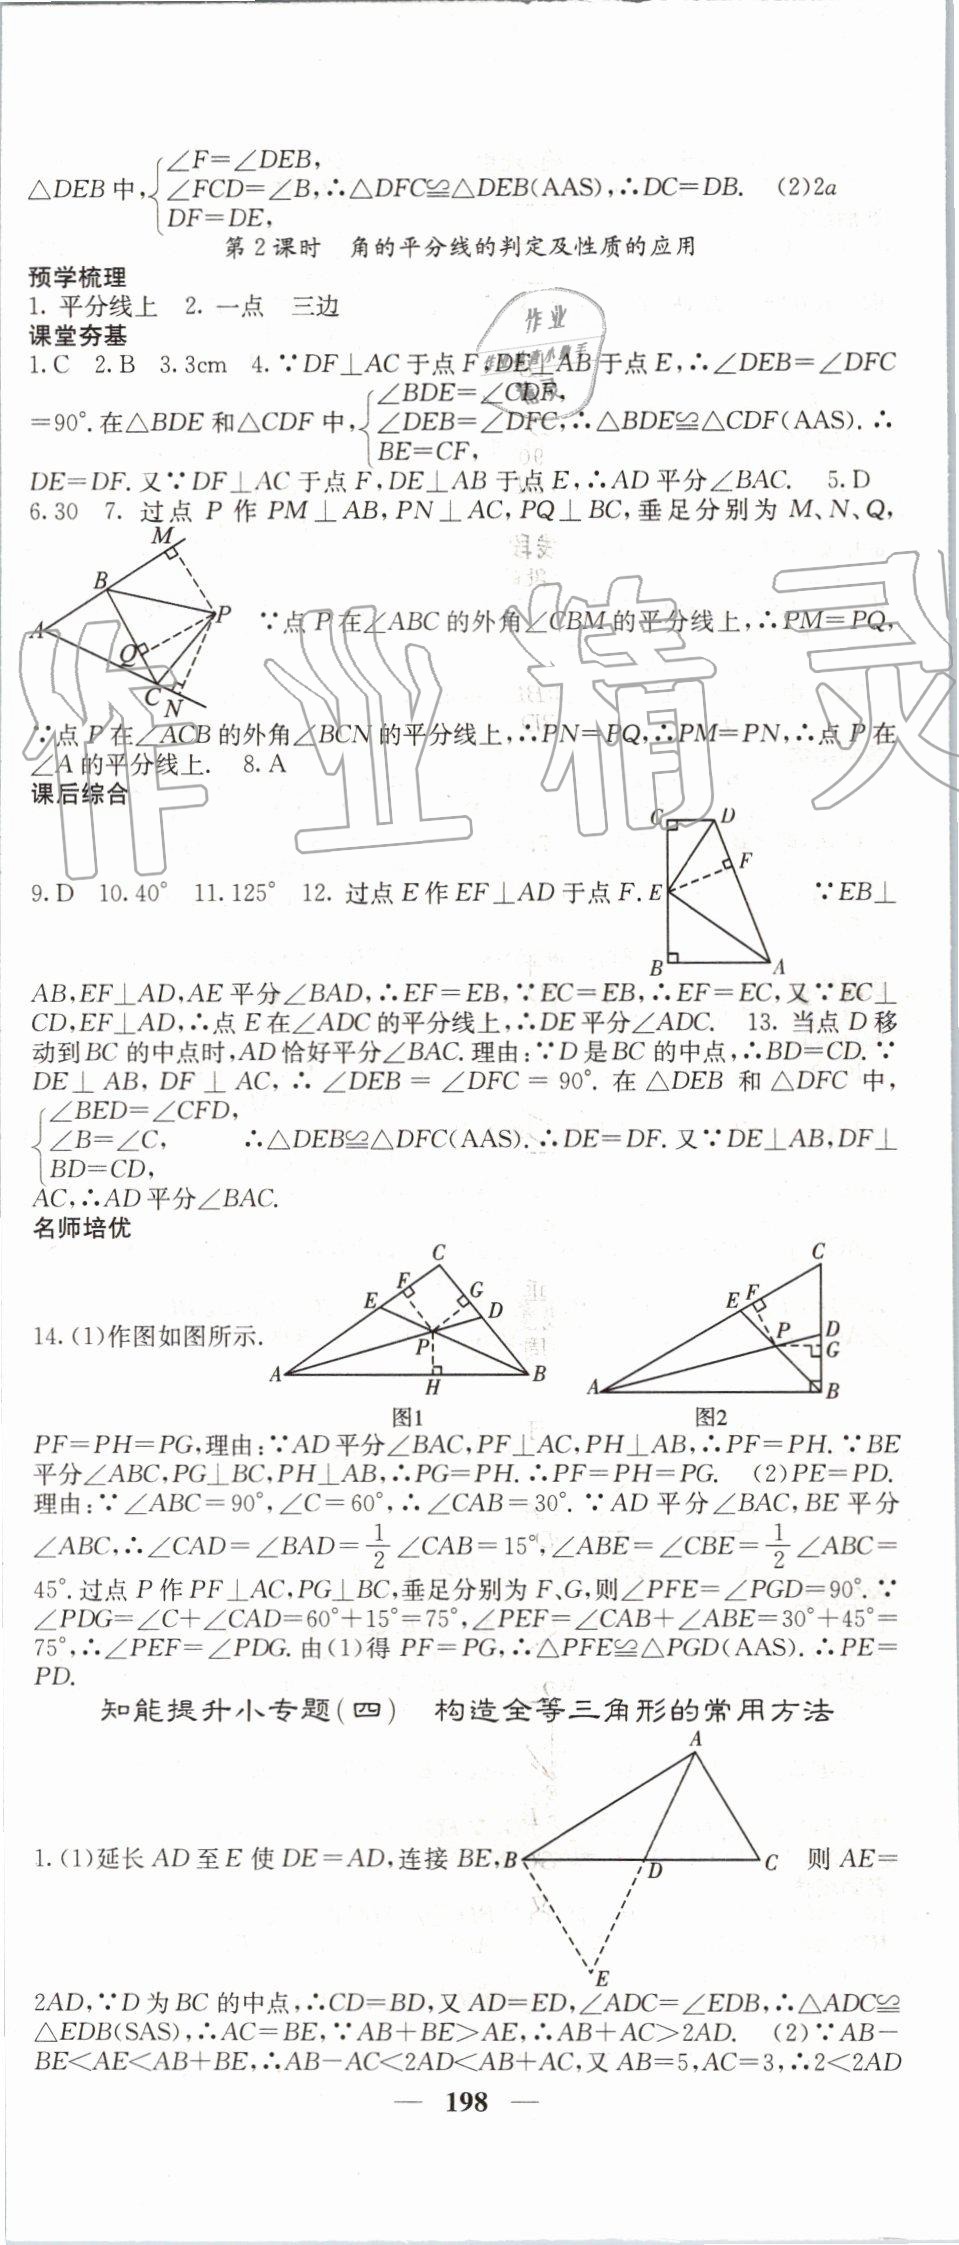 ∠F=∠DEB,
△DEB中,{∠FCD=∠B,∴△DFC≌△DEB(AAS),∴DC=DB. (2)2a
DF=DE,
第2课时 角的平分线的判定及性质的应用
预学梳理
1. 平分线上 2. 一点 三边
课堂夯基
1.C 2.B 3.3cm 4.∵DF⊥AC于点F,DE⊥AB于点E,∴∠DEB=∠DFC
∠BDE=∠CDF,
=90°.在△BDE和△CDF中,{∠DEB=∠DFC,∴△BDE≌△CDF(AAS).∴
BE=CF,
DE=DF.又∵DF⊥AC于点F,DE⊥AB于点E,∴AD平分∠BAC. 5.D
6.30 7. 过点P作PM⊥AB,PN⊥AC,PQ⊥BC,垂足分别为M、N、Q,
M
B
A
P
Q
C
N
∵点P在∠ABC的外角∠CBM的平分线上,∴PM=PQ,
∵点P在∠ACB的外角∠BCN的平分线上,∴PN=PQ,∴PM=PN,∴点P在
∠A的平分线上. 8.A
课后综合
C D
F
9.D 10.40° 11.125° 12. 过点E作EF⊥AD于点F. E ∵EB⊥
B A
AB,EF⊥AD,AE平分∠BAD,∴EF=EB,∵EC=EB,∴EF=EC,又∵EC⊥
CD,EF⊥AD,∴点E在∠ADC的平分线上,∴DE平分∠ADC. 13. 当点D移
动到BC的中点时,AD恰好平分∠BAC.理由:∵D是BC的中点,∴BD=CD.∵
DE⊥AB,DF⊥AC,∴∠DEB=∠DFC=90°.在△DEB和△DFC中,
∠BED=∠CFD,
{∠B=∠C, ∴△DEB≌△DFC(AAS).∴DE=DF.又∵DE⊥AB,DF⊥
BD=CD,
AC,∴AD平分∠BAC.
名师培优
14.(1)作图如图所示.
C
F
E G
D
P
A H B
图1
C
E F
P D
G
A B
图2
PF=PH=PG,理由:∵AD平分∠BAC,PF⊥AC,PH⊥AB,∴PF=PH.∵BE
平分∠ABC,PG⊥BC,PH⊥AB,∴PG=PH.∴PF=PH=PG. (2)PE=PD.
理由:∵∠ABC=90°,∠C=60°,∴∠CAB=30°.∵AD平分∠BAC,BE平分
∠ABC,∴∠CAD=∠BAD=1/2∠CAB=15°,∠ABE=∠CBE=1/2∠ABC=
45°.过点P作PF⊥AC,PG⊥BC,垂足分别为F、G,则∠PFE=∠PGD=90°.∵
∠PDG=∠C+∠CAD=60°+15°=75°,∠PEF=∠CAB+∠ABE=30°+45°=
75°,∴∠PEF=∠PDG.由(1)得PF=PG,∴△PFE≌△PGD(AAS).∴PE=
PD.
知能提升小专题(四) 构造全等三角形的常用方法
A
1.(1)延长AD至E使DE=AD,连接BE, B D C 则AE=
E
2AD,∵D为BC的中点,∴CD=BD,又AD=ED,∠ADC=∠EDB,∴△ADC≌
△EDB(SAS),∴AC=BE,∵AB+BE>AE,∴AB+AC>2AD. (2)∵AB-
BE<AE<AB+BE,∴AB-AC<2AD<AB+AC,又AB=5,AC=3,∴2<2AD
— 198 —
作业精灵